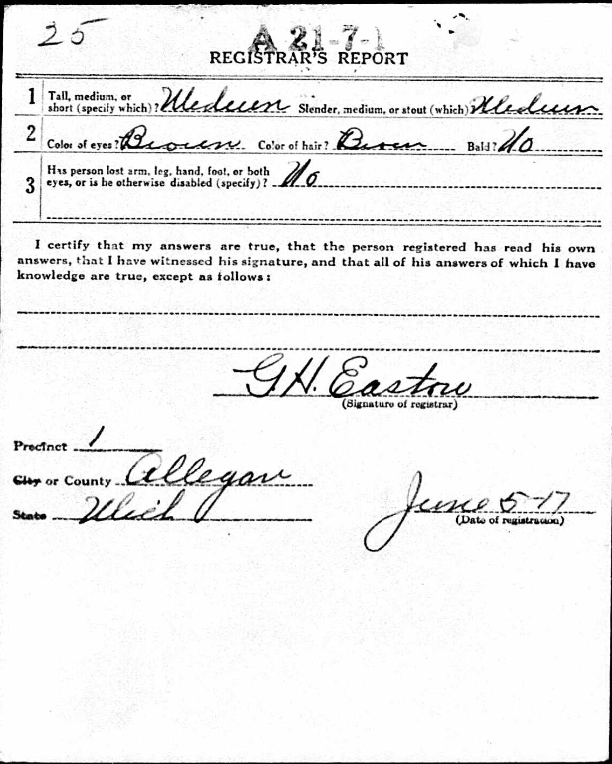 25
A 21-7-1
REGISTRAR'S REPORT
1 Tall, medium, or short (specify which)? Medium Slender, medium, or stout (which) Medium
2 Color of eyes? Brown Color of hair? Brown Bald? No
3 Has person lost arm, leg, hand, foot, or both
eyes, or is he otherwise disabled (specify)? No
I certify that my answers are true, that the person registered has read his own
answers, that I have witnessed his signature, and that all of his answers of which I have
knowledge are true, except as follows:
G.H. Eastow
(Signature of registrar)
Precinct 1
City or County Allegan
State Mich
June 5-17
(Date of registration)